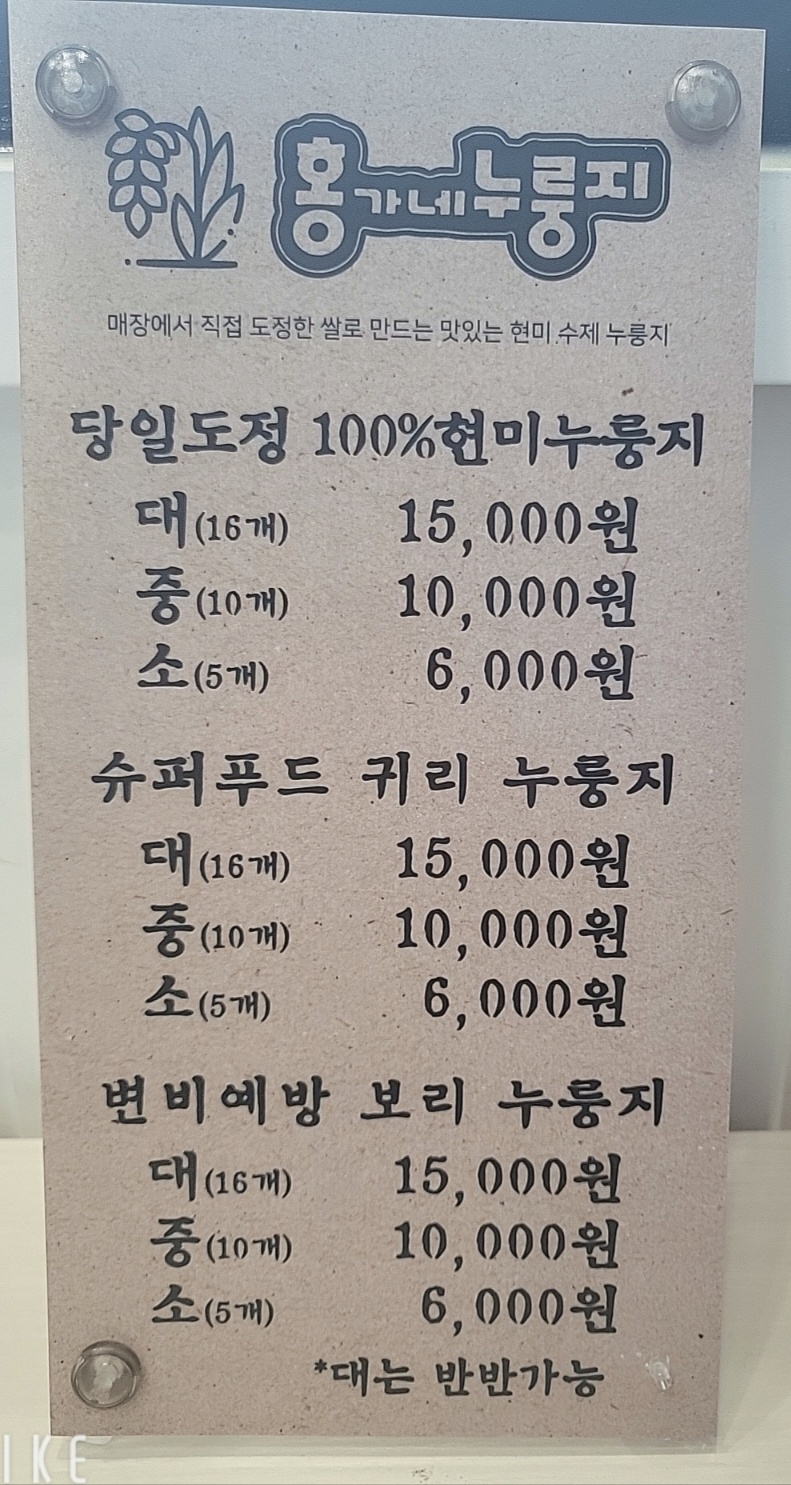 홍가네누룽지
매장에서 직접 도정한 쌀로 만드는 맛있는 현미 수제 누룽지
당일도정 100%현미누룽지
대(16개) 15,000원
중(10개) 10,000원
소(5개) 6,000원
슈퍼푸드 귀리 누룽지
대(16개) 15,000원
중(10개) 10,000원
소(5개) 6,000원
변비예방 보리 누룽지
대(16개) 15,000원
중(10개) 10,000원
소(5개) 6,000원
*대는 반반가능
IKE